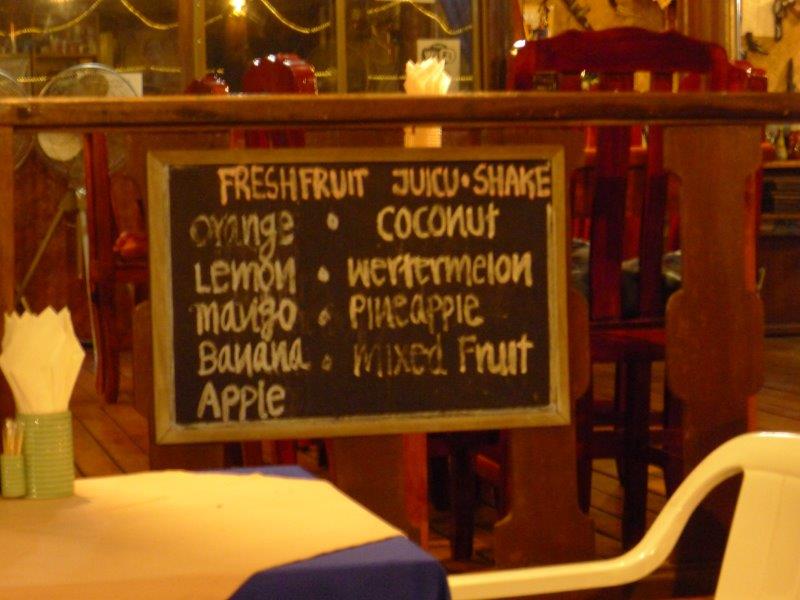 FRESHFRUIT JUICU•SHAKE
orange • COCONUT
LEMON • wertermelon
mango • PINEAPPLE
Banana • Mixed Fruit
Apple